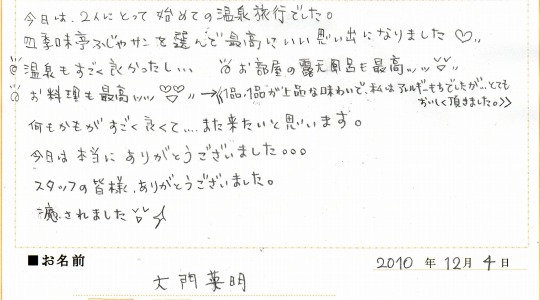 今日は、2人にとって始めての温泉旅行でした。
四季味亭ふじやサンを選んで最高にいい思い出になりました♡〃
◎温泉もすごく良かったし、、、 ◎お部屋の露天風呂も最高〃〃
◎お料理も最高〃〃 →《1品、1品が上品な味わいで、私はアレルギーもちでしたが…とても
おいしく頂きました。》
何もかもがすごく良くて....また来たいと思います。
今日は本当にありがとうございました。。。
スタッフの皆様、ありがとうございました。
癒されました
■お名前
大門英明
2010 年 12月 4日